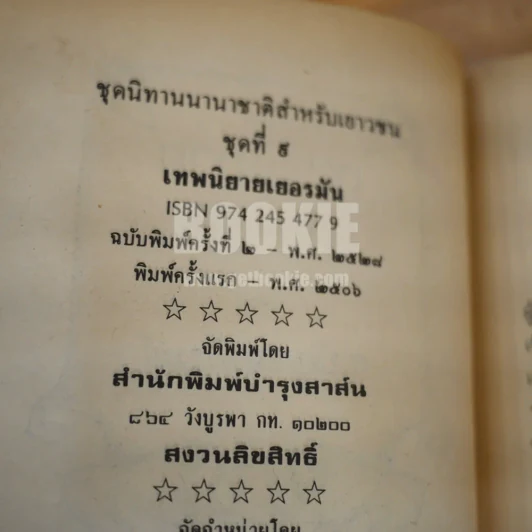 ชุดนิทานนานาชาติสำหรับเยาวชน
ชุดที่ ๙
เทพนิยายเยอรมัน
ISBN 974 245 477 9
BOOKIE
ฉบับพิมพ์ครั้งที่ ๒ - พ.ศ. ๒๕๒๘
พิมพ์ครั้งแรก - พ.ศ. ๒๕๐๖
จัดพิมพ์โดย
สำนักพิมพ์บำรุงสาส์น
๘๖๔ วังบูรพา กท. ๑๐๒๐๐
สงวนลิขสิทธิ์
จัดจำหน่ายโดย